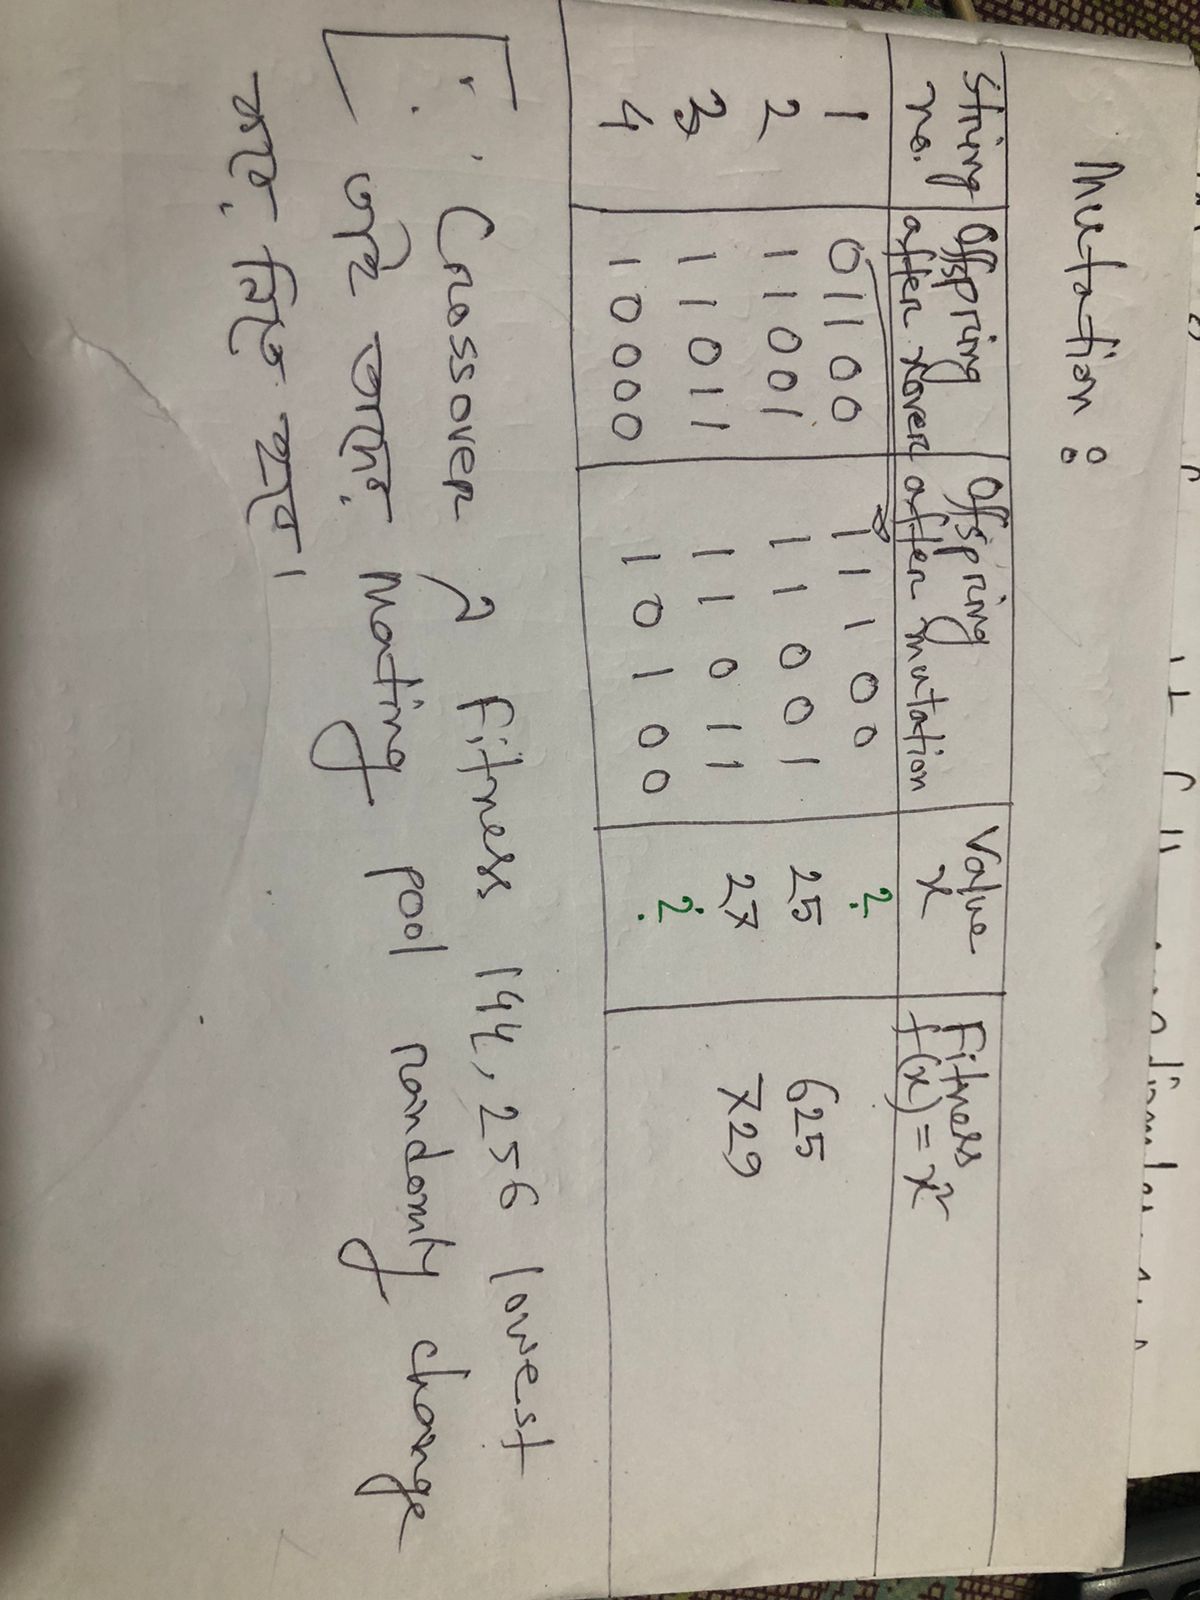 Mutation :
String no. | Offspring after xover | Offspring after mutation | Value x | Fitness f(x) = x²
1 | 01100 | 11100 | ?
2 | 11001 | 11001 | 25 | 625
3 | 11011 | 11011 | 27 | 729
4 | 10000 | 10100 | ?
[∵ Crossover এ fitness 144, 256 lowest
তাই তাদের Mating pool randomly change
করে নিতে হবে।